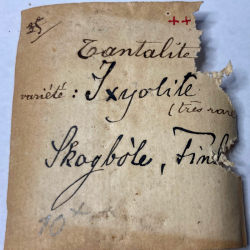 35
++
Tantalite
variété : Ixyolite
(très rare
Skogböle, Finl